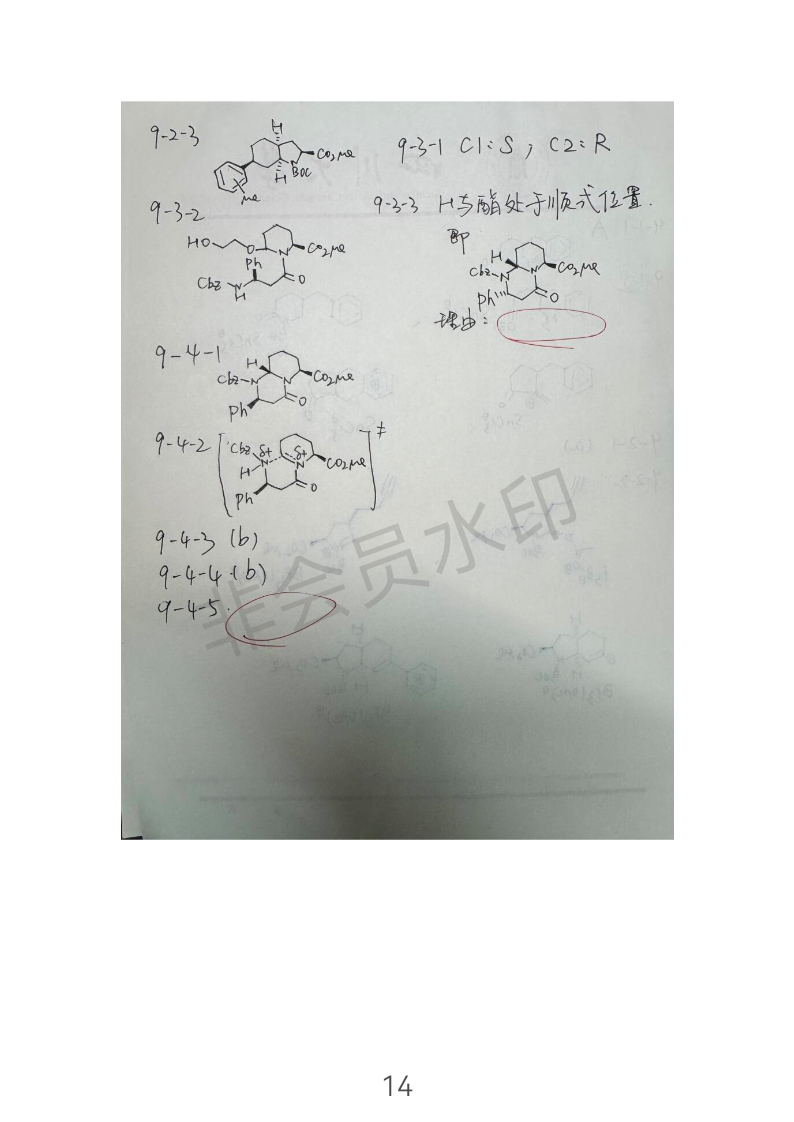 9-2-3
H
CO2Me
N
Boc
H
Me
9-3-1 C1:S , C2:R
9-3-2
HO
O
N
CO2Me
Ph
Cbz
N
H
O
9-3-3 H与酯处于顺式位置.
即
H
Cbz-N
N
CO2Me
Ph
O
理由:
9-4-1
H
Cbz-N
N
CO2Me
Ph
O
9-4-2
Cbz δ+
δ+
≠
H-N
N
CO2Me
Ph
O
9-4-3 (b)
9-4-4.(b)
9-4-5.
非会员水印
14